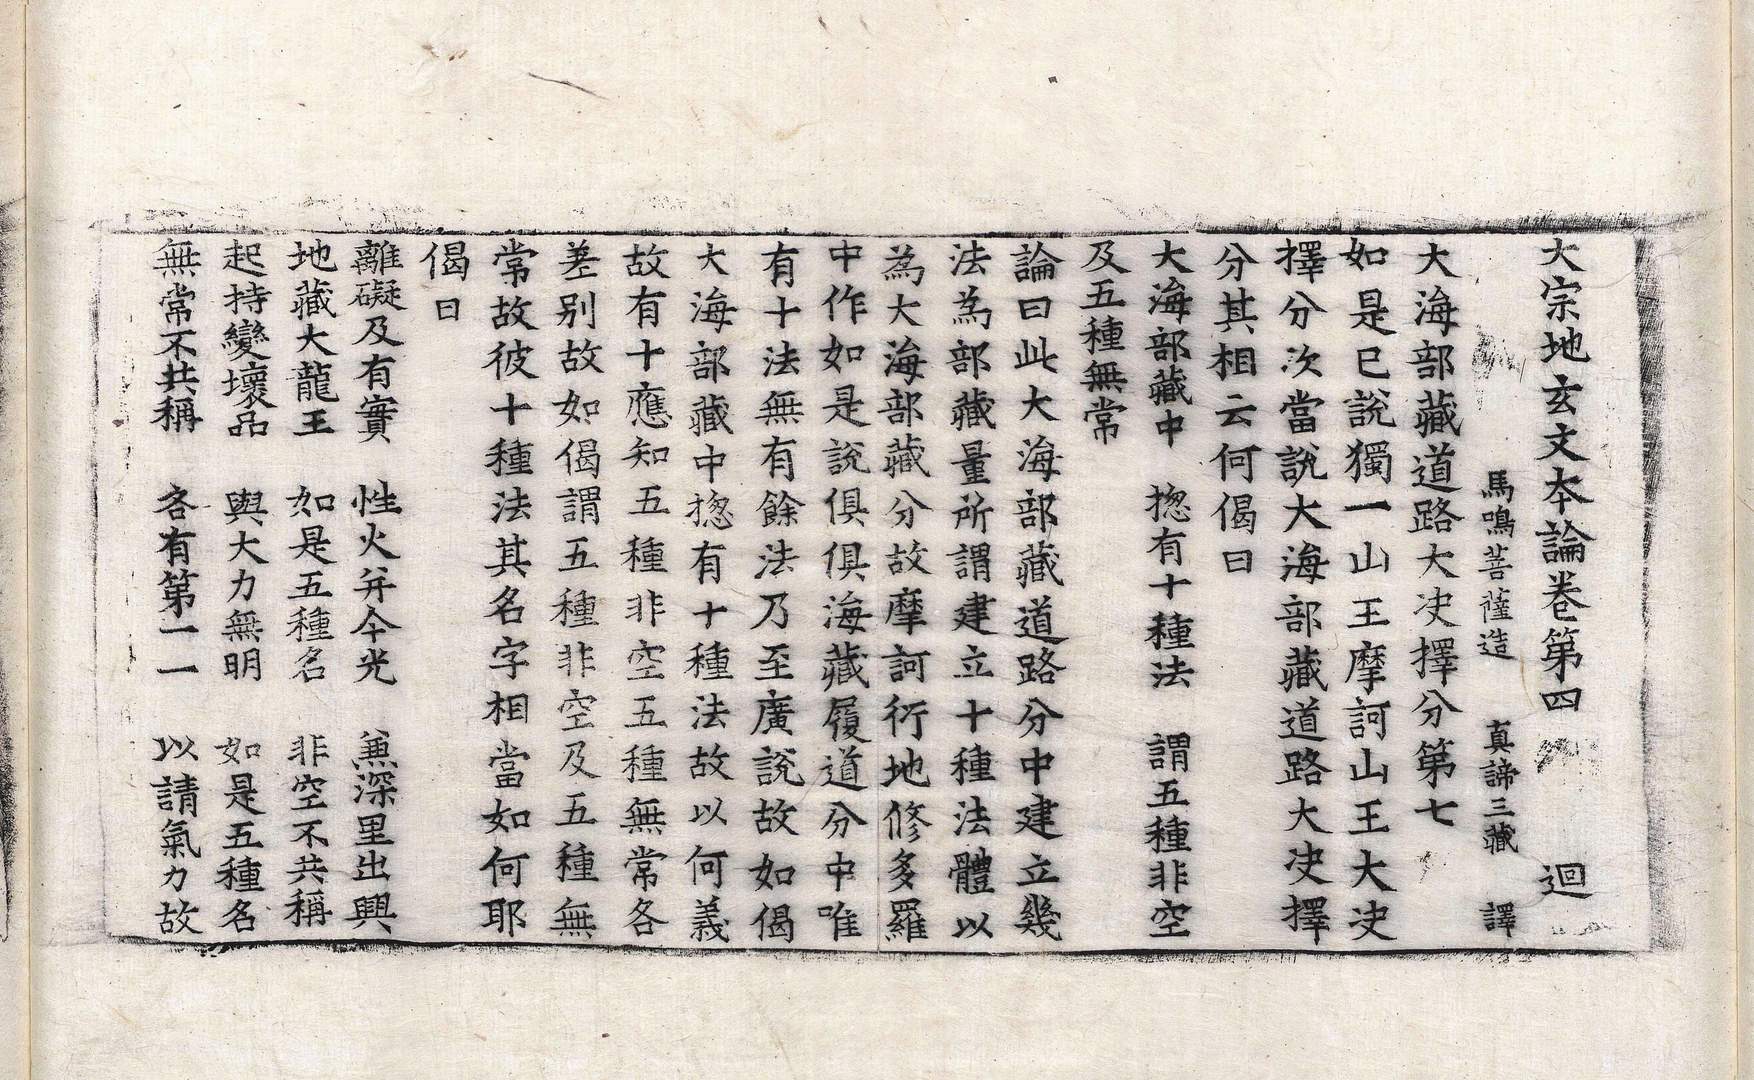 大宗地玄文本論卷第四　迴
馬鳴菩薩造　真諦三藏　譯
大海部藏道路大决擇分第七
如是已說獨一山王摩訶山王大决
擇分次當說大海部藏道路大决擇
分其相云何偈曰
大海部藏中　揔有十種法　謂五種非空
及五種無常
論曰此大海部藏道路分中建立幾
法為部藏量所謂建立十種法體以
為大海部藏分故摩訶衍地修多羅
中作如是說俱俱海藏履道分中唯
有十法無有餘法乃至廣說故如偈
大海部藏中揔有十種法故以何義
故有十應知五種非空五種無常各
差別故如偈謂五種非空及五種無
常故彼十種法其名字相當如何耶
偈曰
離礙及有實　性火并今光　兼深里出興
地藏大龍王　如是五種名　非空不共稱
起持變壞品　與大力無明　如是五種名
無常不共稱　各有第一一　以請氣力故